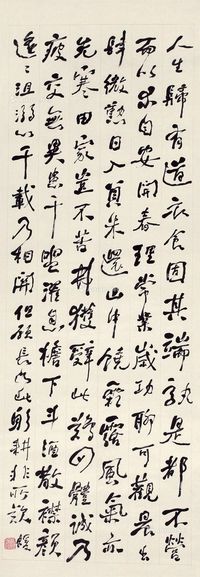 人生歸有道衣食固其端孰是都不營
而以求自安開春理常業歲功聊可觀晨出
肆微勤日入負耒還山中饒霜露風氣亦
先寒田家豈不苦弗獲辭此難四體誠乃
疲庶無異患干盥濯息檐下斗酒散襟顏
遙々沮溺心千載乃相關但願長如此躬耕非所歎